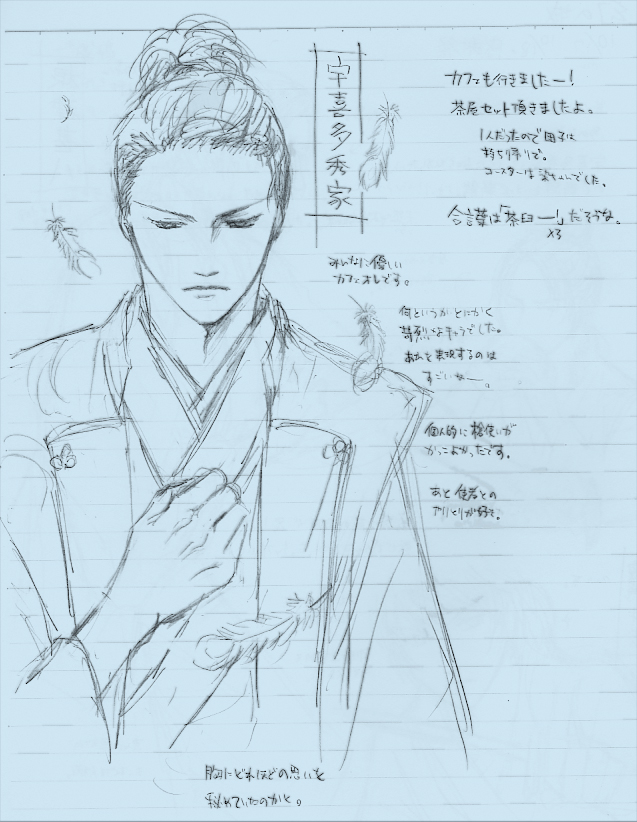 宇喜多秀家
カフェも行きましたー!
茶屋セット頂きましたよ。
1人だったので団子は
持ち帰りで。
コースターは
でした。
合言葉は「茶臼ー!」だそうな。
×3
みんなに優しい
カフェオレです。
何というかとにかく
なキャラでした。
あれを実現するのは
すごいなー。
個人的に槍使いが
かっこよかったです。
あと信者との
やりとりが好き。
胸にどれほどの思いを
秘めていたのかと。